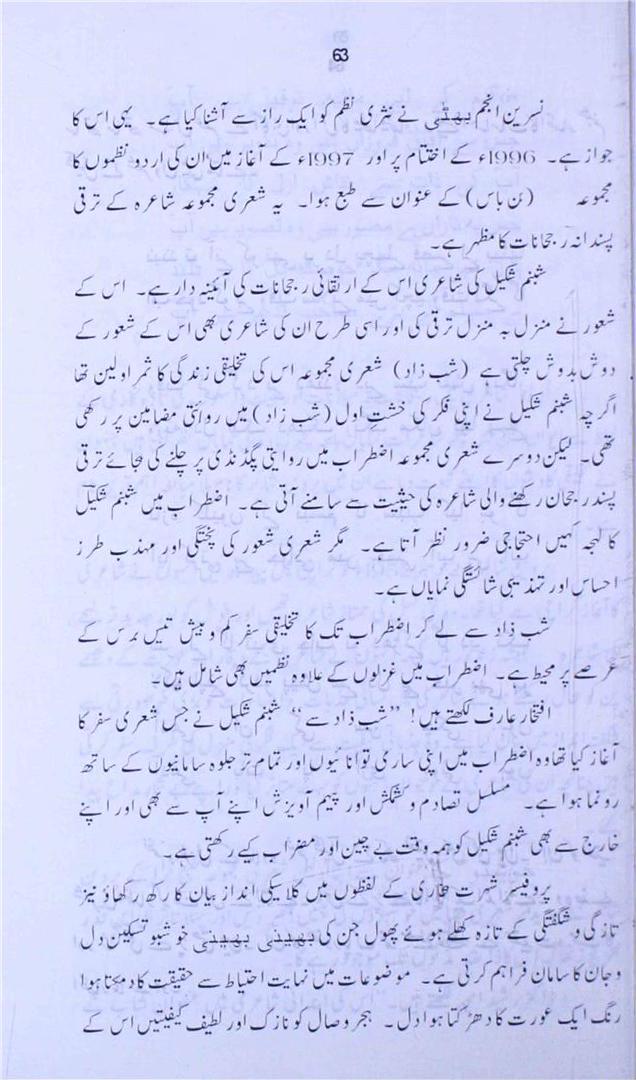 63
نسرین انجم بھٹی نے نثری نظم کو ایک راز سے آشنا کیا ہے۔ یہی اس کا
جواز ہے۔ 1996ء کے اختتام پر اور 1997ء کے آغاز میں ان کی اردو نظموں کا
مجموعہ (بن باس) کے عنوان سے طبع ہوا۔ یہ شعری مجموعہ شاعرہ کے ترقی
پسندانہ رجحانات کا مظہر ہے۔
شبنم شکیل کی شاعری اس کے ارتقائی رجحانات کی آئینہ دار ہے۔ اس کے
شعور نے منزل بہ منزل ترقی کی اور اسی طرح ان کی شاعری بھی اس کے شعور کے
دوش بدوش چلتی ہے (شب زاد) شعری مجموعہ اس کی تخلیقی زندگی کا ثمر اولین تھا
اگرچہ شبنم شکیل نے اپنی فکر کی خشتِ اول (شب زاد) میں روائتی مضامین پر رکھی
تھی۔ لیکن دوسرے شعری مجموعہ اضطراب میں روایتی پگڈنڈی پر چلنے کی بجائے ترقی
پسند رجحان رکھنے والی شاعرہ کی حیثیت سے سامنے آتی ہے۔ اضطراب میں شبنم شکیل
کا لہجہ کہیں احتجاجی ضرور نظر آتا ہے۔ مگر شعری شعور کی پختگی اور مہذب طرز
احساس اور تہذیبی شائستگی نمایاں ہے۔
شب زاد سے لے کر اضطراب تک کا تخلیقی سفر کم و بیش تیس برس کے
عرصے پر محیط ہے۔ اضطراب میں غزلوں کے علاوہ نظمیں بھی شامل ہیں۔
افتخار عارف لکھتے ہیں! ”شب زاد سے“ شبنم شکیل نے جس شعری سفر کا
آغاز کیا تھا وہ اضطراب میں اپنی ساری توانائیوں اور تمام تر جلوہ سامانیوں کے ساتھ
رونما ہوا ہے۔ مسلسل تصادم و کشمکش اور پیہم آویزش اپنے آپ سے بھی اور اپنے
خارج سے بھی شبنم شکیل کو ہمہ وقت بے چین اور مضراب کیے رکھتی ہے۔
پروفیسر شہرت بخاری کے لفظوں میں کلاسیکی انداز بیان کا رکھ رکھاؤ نیز
تازگی و شگفتگی کے تازہ کھلے ہوئے پھول جن کی بھینی بھینی خوشبو تسکین دل
و جان کا سامان فراہم کرتی ہے۔ موضوعات میں نہایت احتیاط سے حقیقت کا دمکتا ہوا
رنگ ایک عورت کا دھڑکتا ہوا دل۔ ہجر و صال کو نازک اور لطیف کیفیتیں اس کے